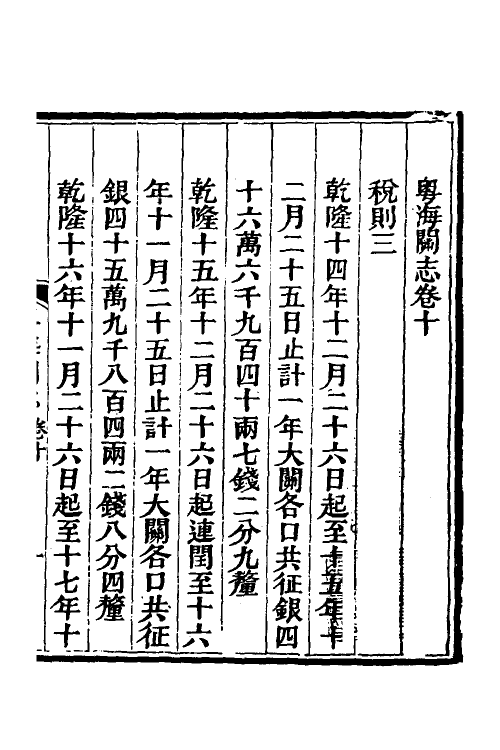 粵海關志卷十
稅則三
乾隆十四年十二月二十六日起至十五年十
二月二十五日止計一年大關各口共征銀四
十六萬六千九百四十兩七錢二分九釐
乾隆十五年十二月二十六日起連閏至十六
年十一月二十五日止計一年大關各口共征
銀四十五萬九千八百四兩二錢八分四釐
乾隆十六年十一月二十六日起至十七年十
卷十